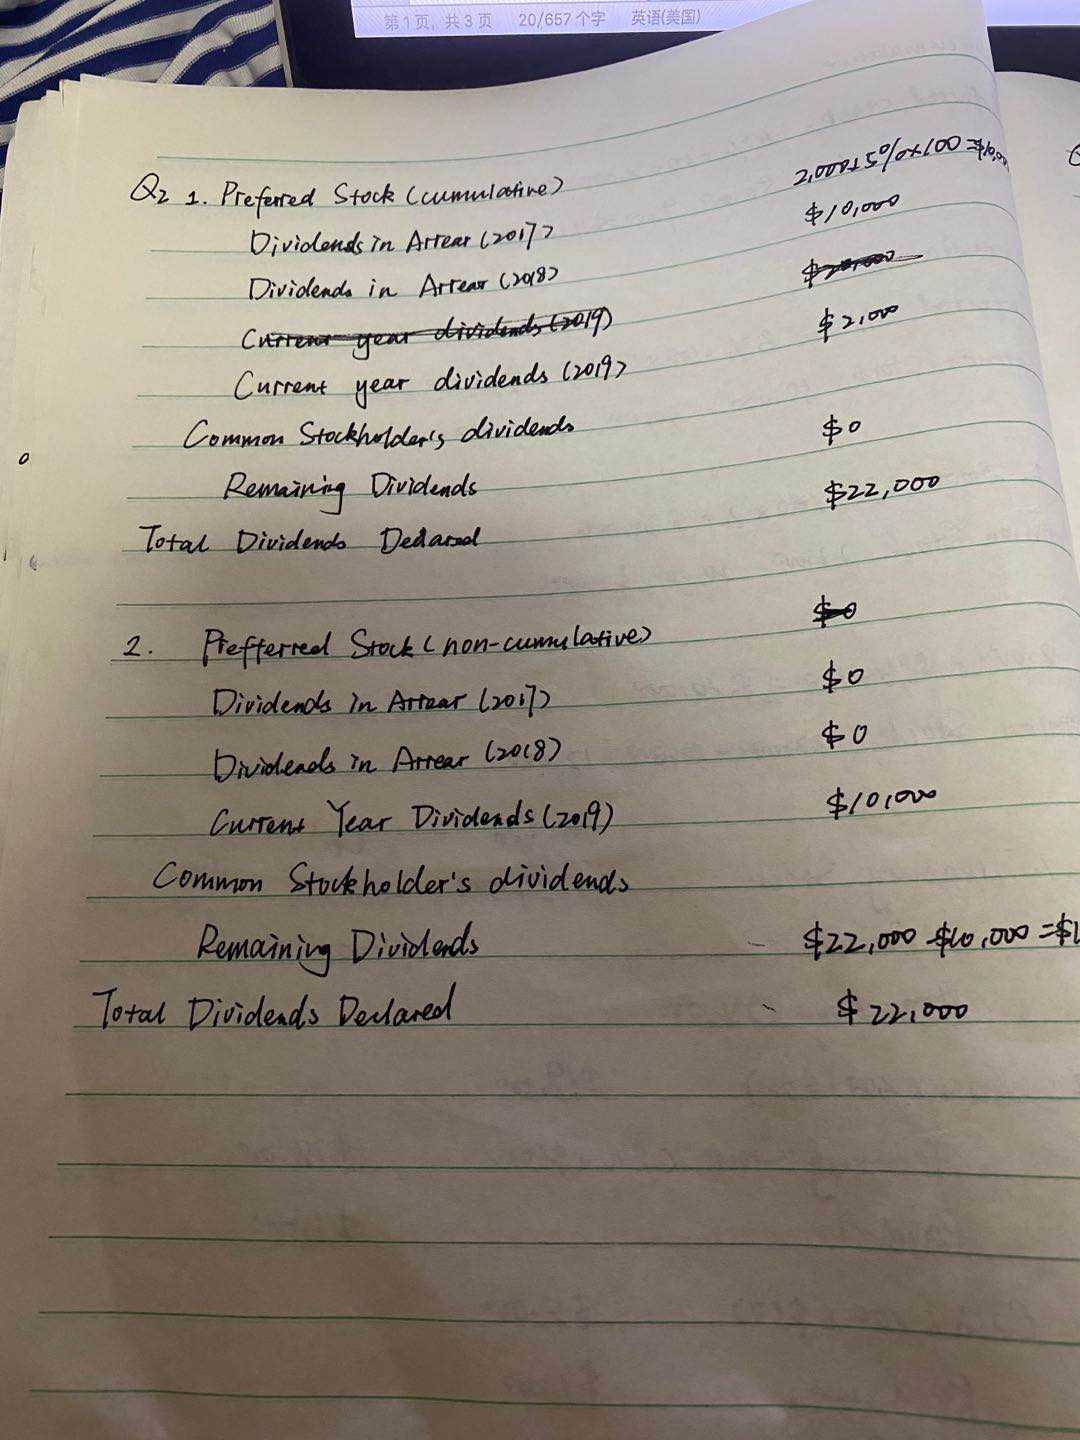 第1页，共3页 20/657个字 英语(美国)
Q2 1. Preferred Stock (cumulative)
Dividends in Arrear (2017) 2,000×5%×100=$10,000
Dividends in Arrear (2018) $10,000
Current year dividends (2019) $20,000
Current year dividends (2019) $2,000
Common Stockholder's dividends
Remaining Dividends $0
Total Dividends Declared $22,000
2. Prefferred Stock (non-cumulative) $0
Dividends in Arrear (2017) $0
Dividends in Arrear (2018) $0
Current Year Dividends (2019) $10,000
Common Stockholder's dividends
Remaining Dividends $22,000-$10,000=$1
Total Dividends Declared $22,000